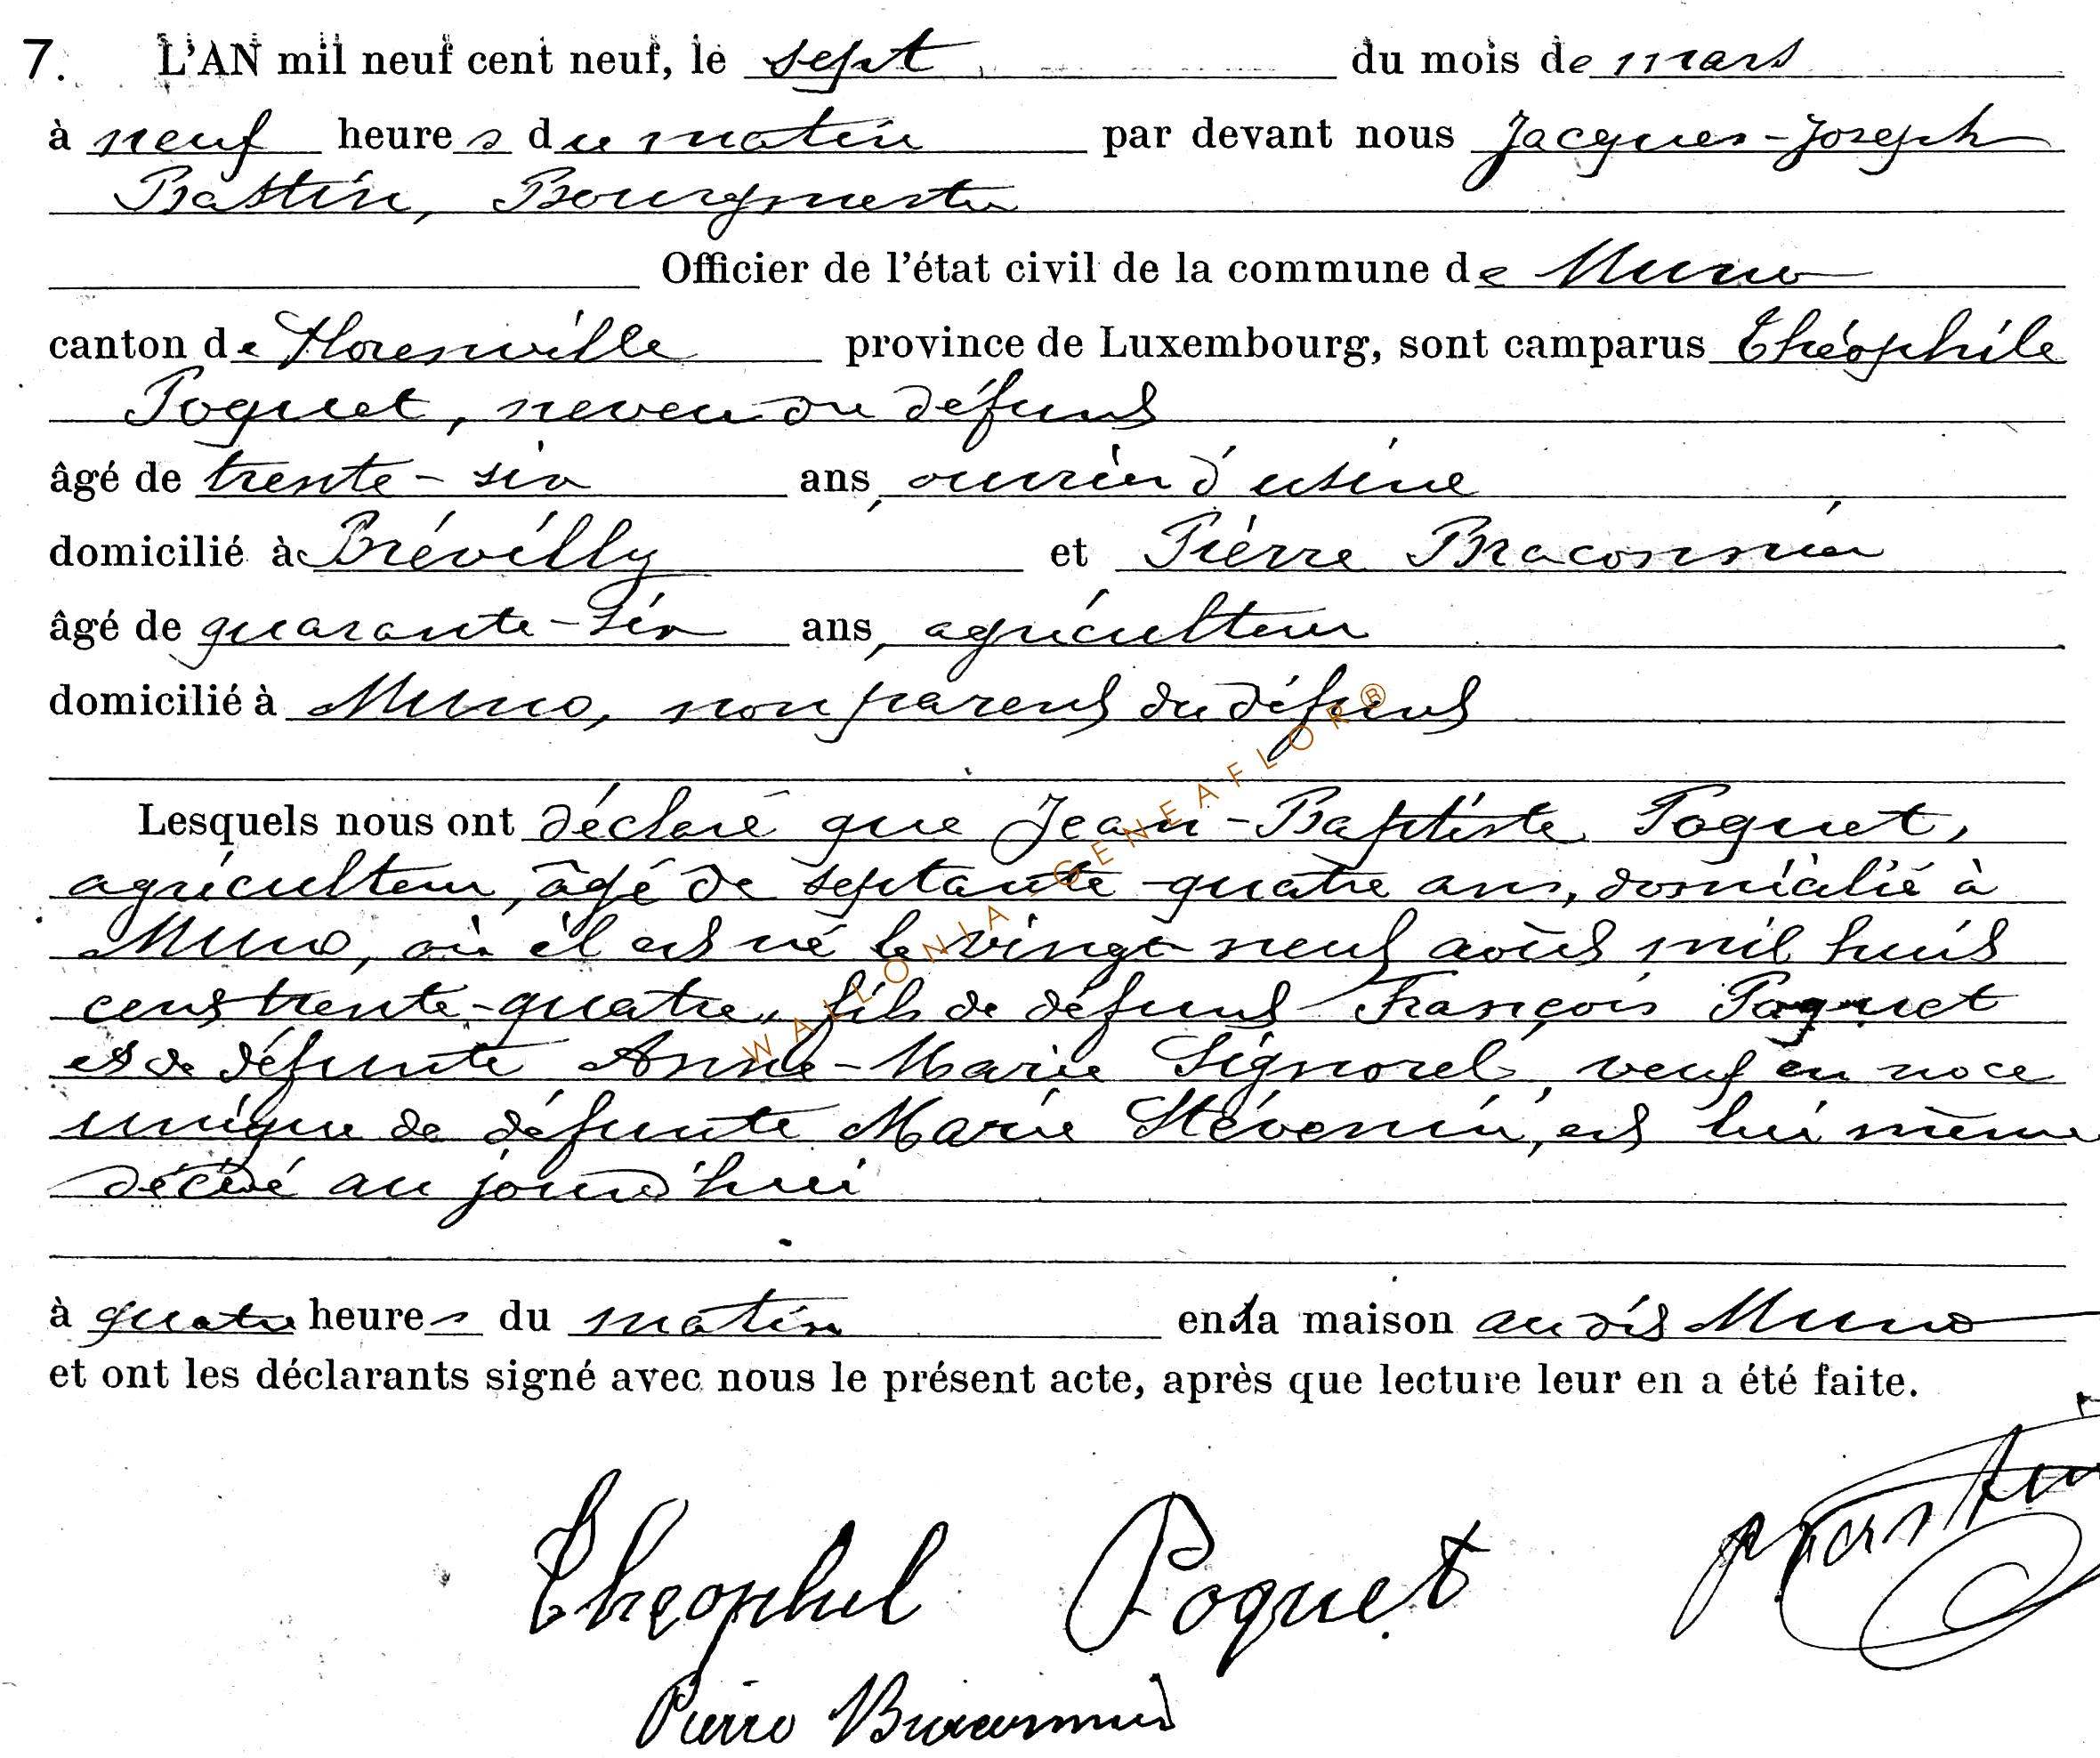 7. L'AN mil neuf cent neuf, le sept du mois de mars
à neuf heures du matin par devant nous Jacques-Joseph
Bastin, Bourgmestre
Officier de l'état civil de la commune de Muno
canton de Florenville province de Luxembourg, sont camparus Théophile
Poquet, neveu du défunt
âgé de trente-six ans, ouvrier d'usine
domicilié à Brévilly et Pierre Braconnier
âgé de quarante-six ans, agriculteur
domicilié à Muno, non parent du défunt
Lesquels nous ont déclaré que Jean-Baptiste Poquet,
agriculteur, âgé de septante-quatre ans, domicilié à
Muno, où il est né le vingt-neuf août mil huit
cent trente-quatre, fils de défunt François Poquet
et de défunte Anne-Marie Signorel, veuf en noce
unique de défunte Marie Stévenin, est lui même
décédé au jourd'hui
à quatre heures du matin en la maison au dit Muno
et ont les déclarants signé avec nous le présent acte, après que lecture leur en a été faite.
Theophil Poquet Bastin
Pierre Braconnier
WALLONIA-GENEAFLOR®